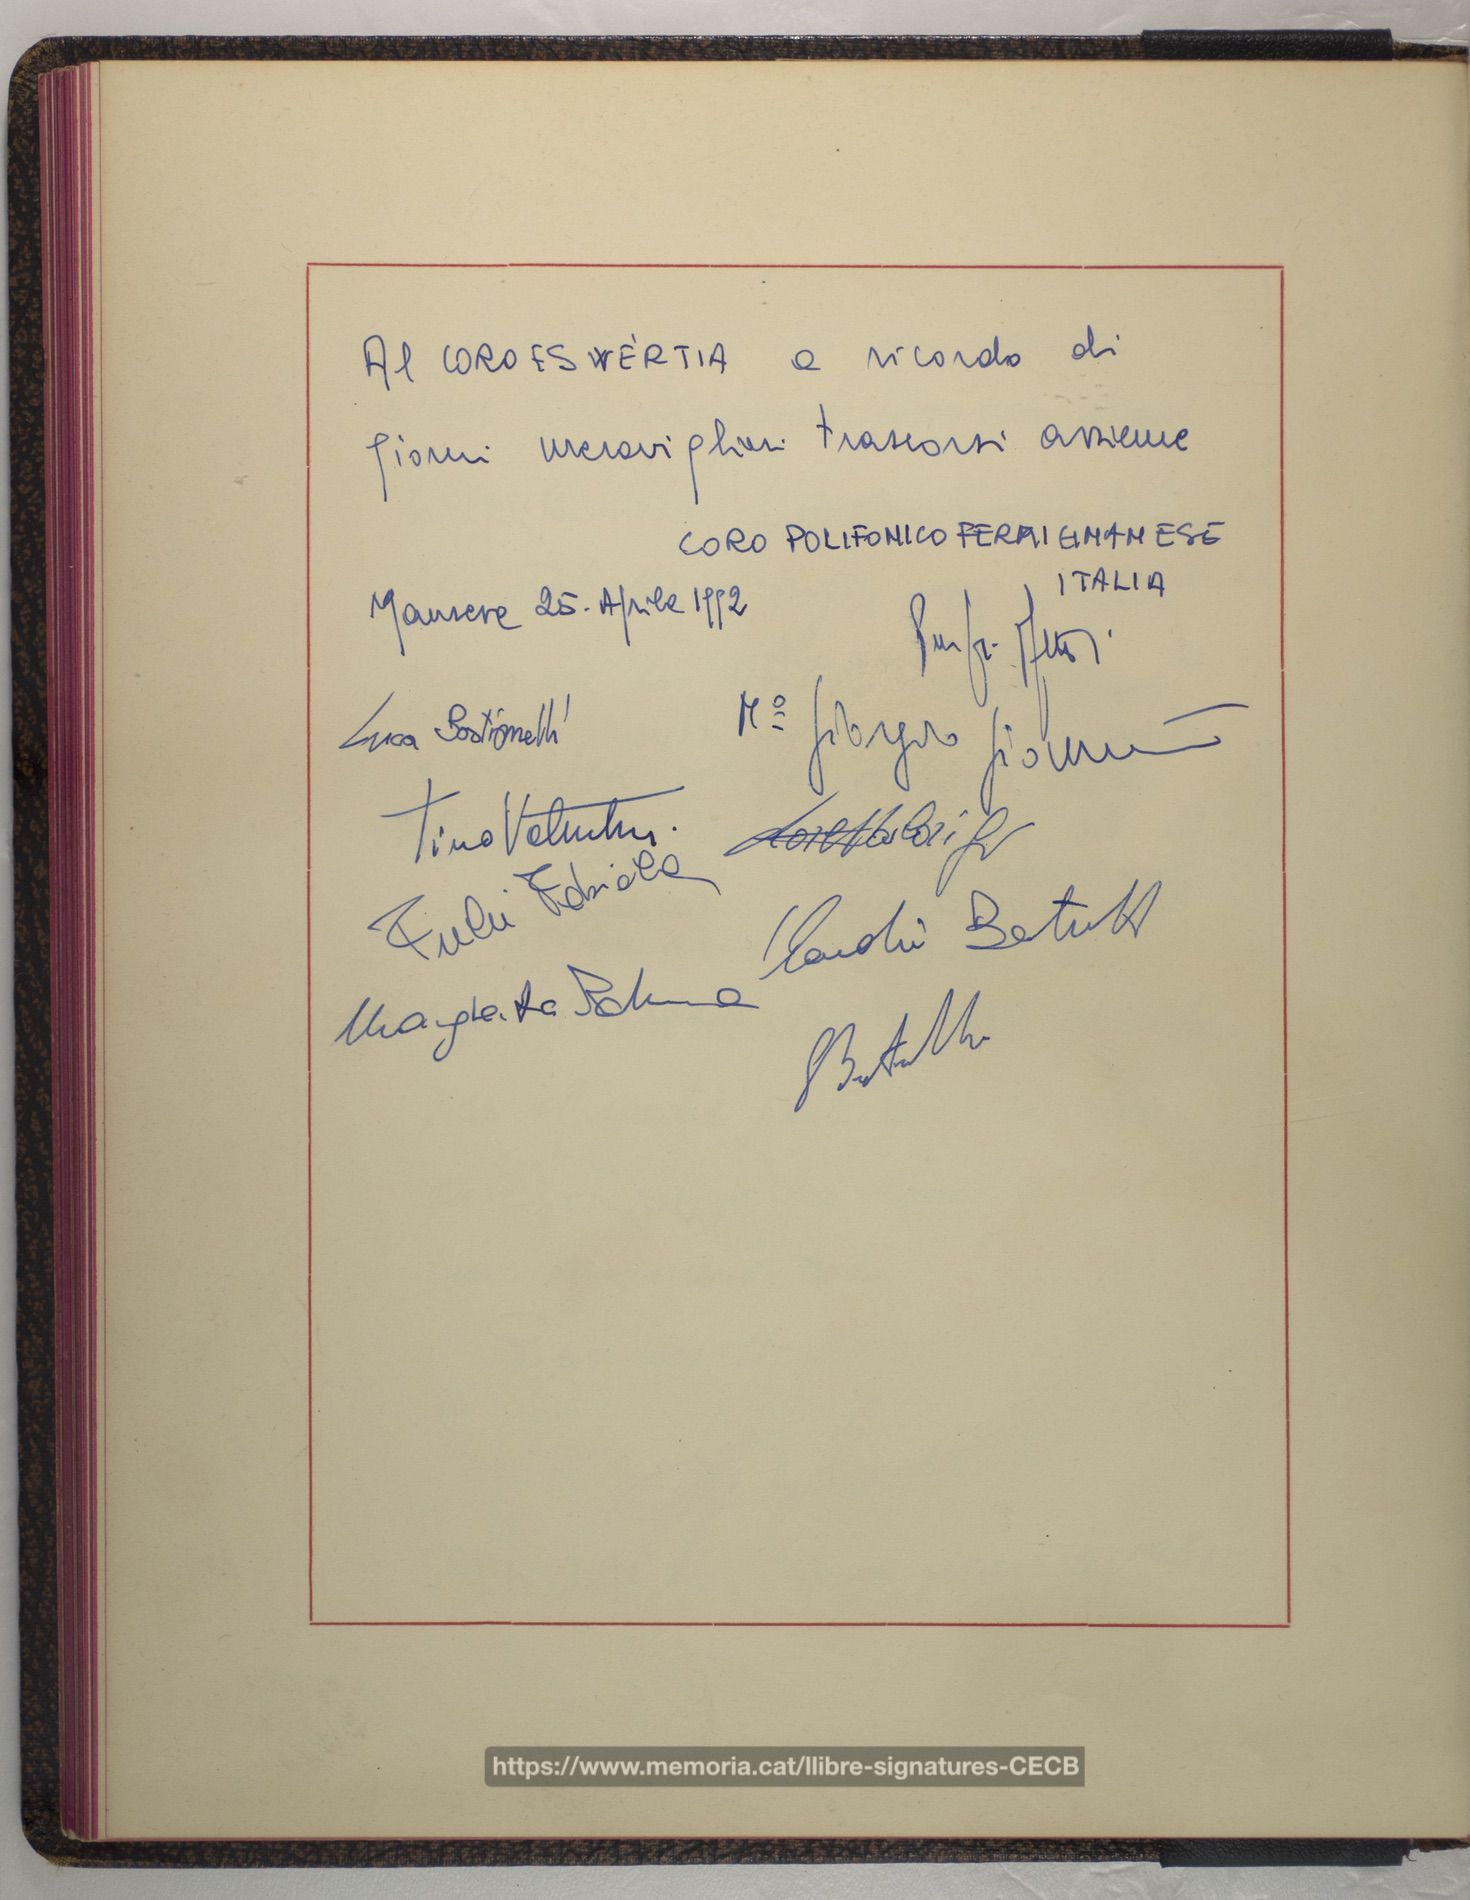 Al CORO ESWÈRTIA a ricordo di
giorni meravigliosi trascorsi assieme
CORO POLIFONICO FERMIGNANESE
ITALIA
Manrere 25. Aprile 1992
Luca Bastianelli
Mº Giorgio
Tino Valentini.
Loretta
Fabiola
Claudio Bertulli
Margherita
https://www.memoria.cat/llibre-signatures-CECB